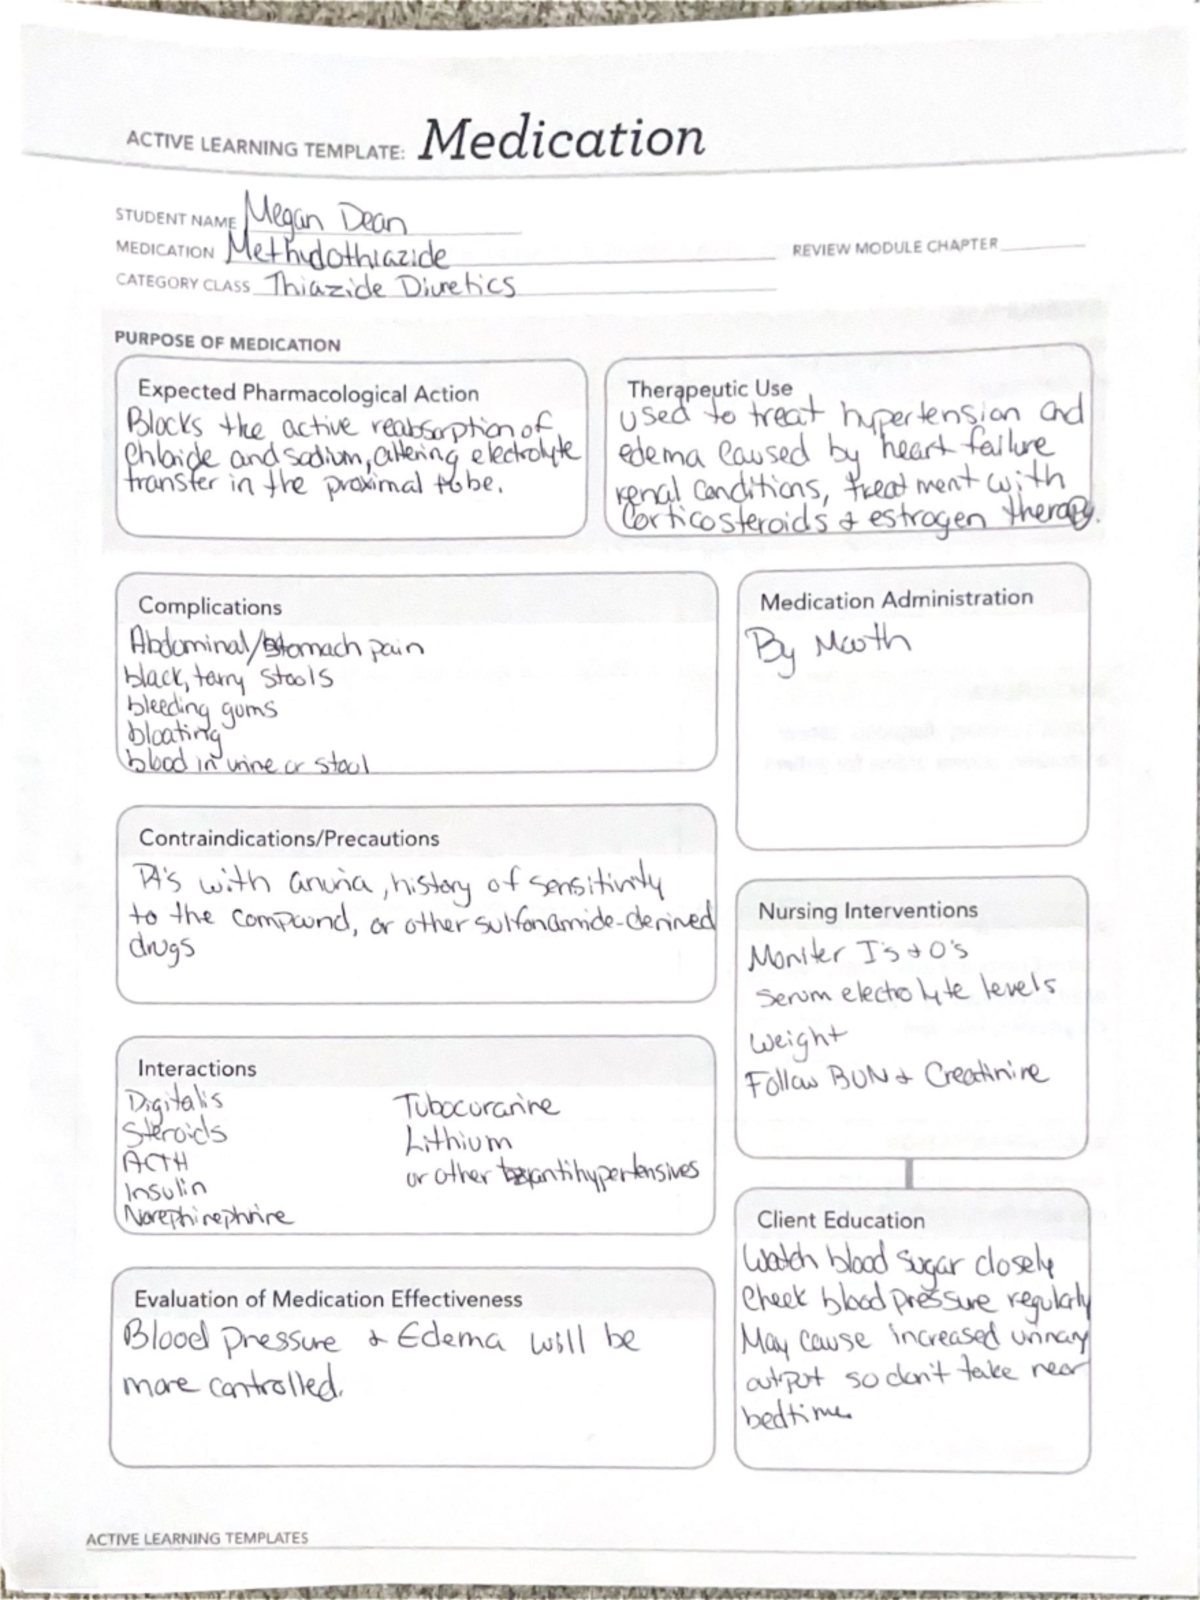 ACTIVE LEARNING TEMPLATE: Medication
STUDENT NAME Megan Dean
MEDICATION Methydothiazide
REVIEW MODULE CHAPTER
CATEGORY CLASS Thiazide Diuretics
PURPOSE OF MEDICATION
Expected Pharmacological Action
Blocks the active reabsorption of
Chloride and sodium, altering electrolyte
transfer in the proximal tube.
Therapeutic Use
used to treat hypertension and
edema caused by heart failure
renal conditions, treatment with
Corticosteroids & estrogen therapy.
Complications
Abdominal/Stomach pain
black, tarry stools
bleeding gums
bloating
blood in urine or stool
Medication Administration
By Mouth
Contraindications/Precautions
Pt's with anuria, history of sensitivity
to the compound, or other sulfonamide-derived
drugs
Nursing Interventions
Moniter I's & O's
Serum electrolyte levels
Weight
Follow BUN & Creatinine
Interactions
Digitalis
Steroids
ACTH
Insulin
Norephinephrine
Tubocurarine
Lithium
or other antihypertensives
Client Education
Watch blood sugar closely
Check blood pressure regularly
May cause increased urinary
output so don't take near
bedtime.
Evaluation of Medication Effectiveness
Blood Pressure & Edema will be
more controlled.
ACTIVE LEARNING TEMPLATES